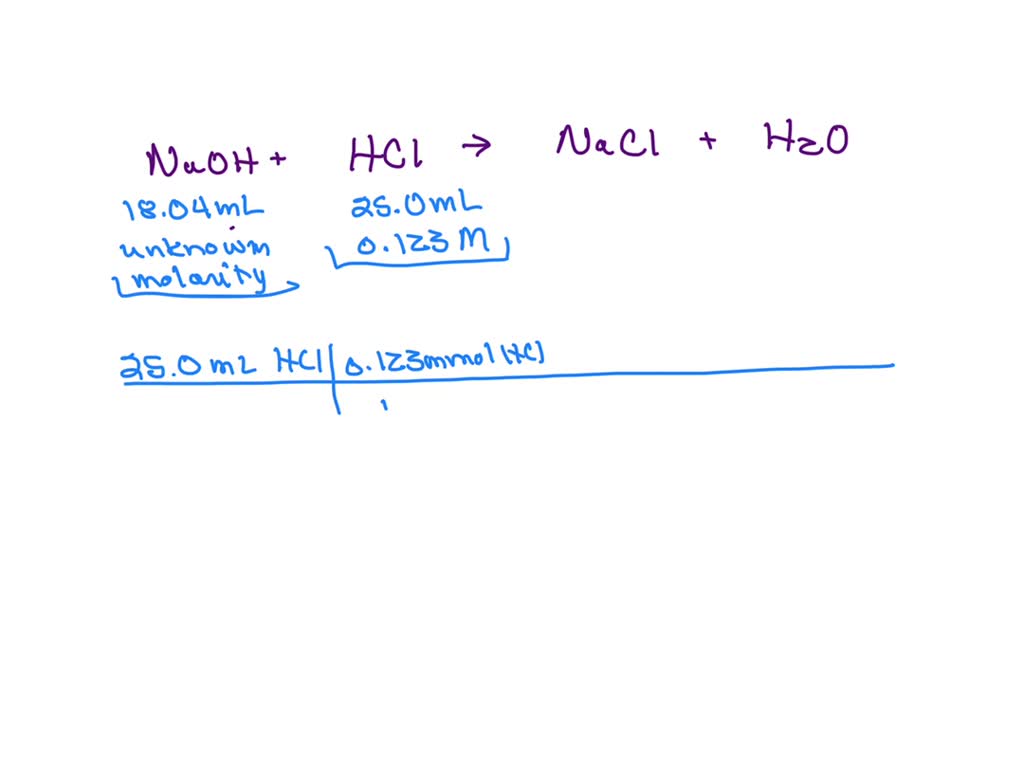 NaOH + HCl → NaCl + H2O
18.04mL 25.0mL
unknown 0.123 M
molarity
25.0 mL HCl 0.123mmol HCl